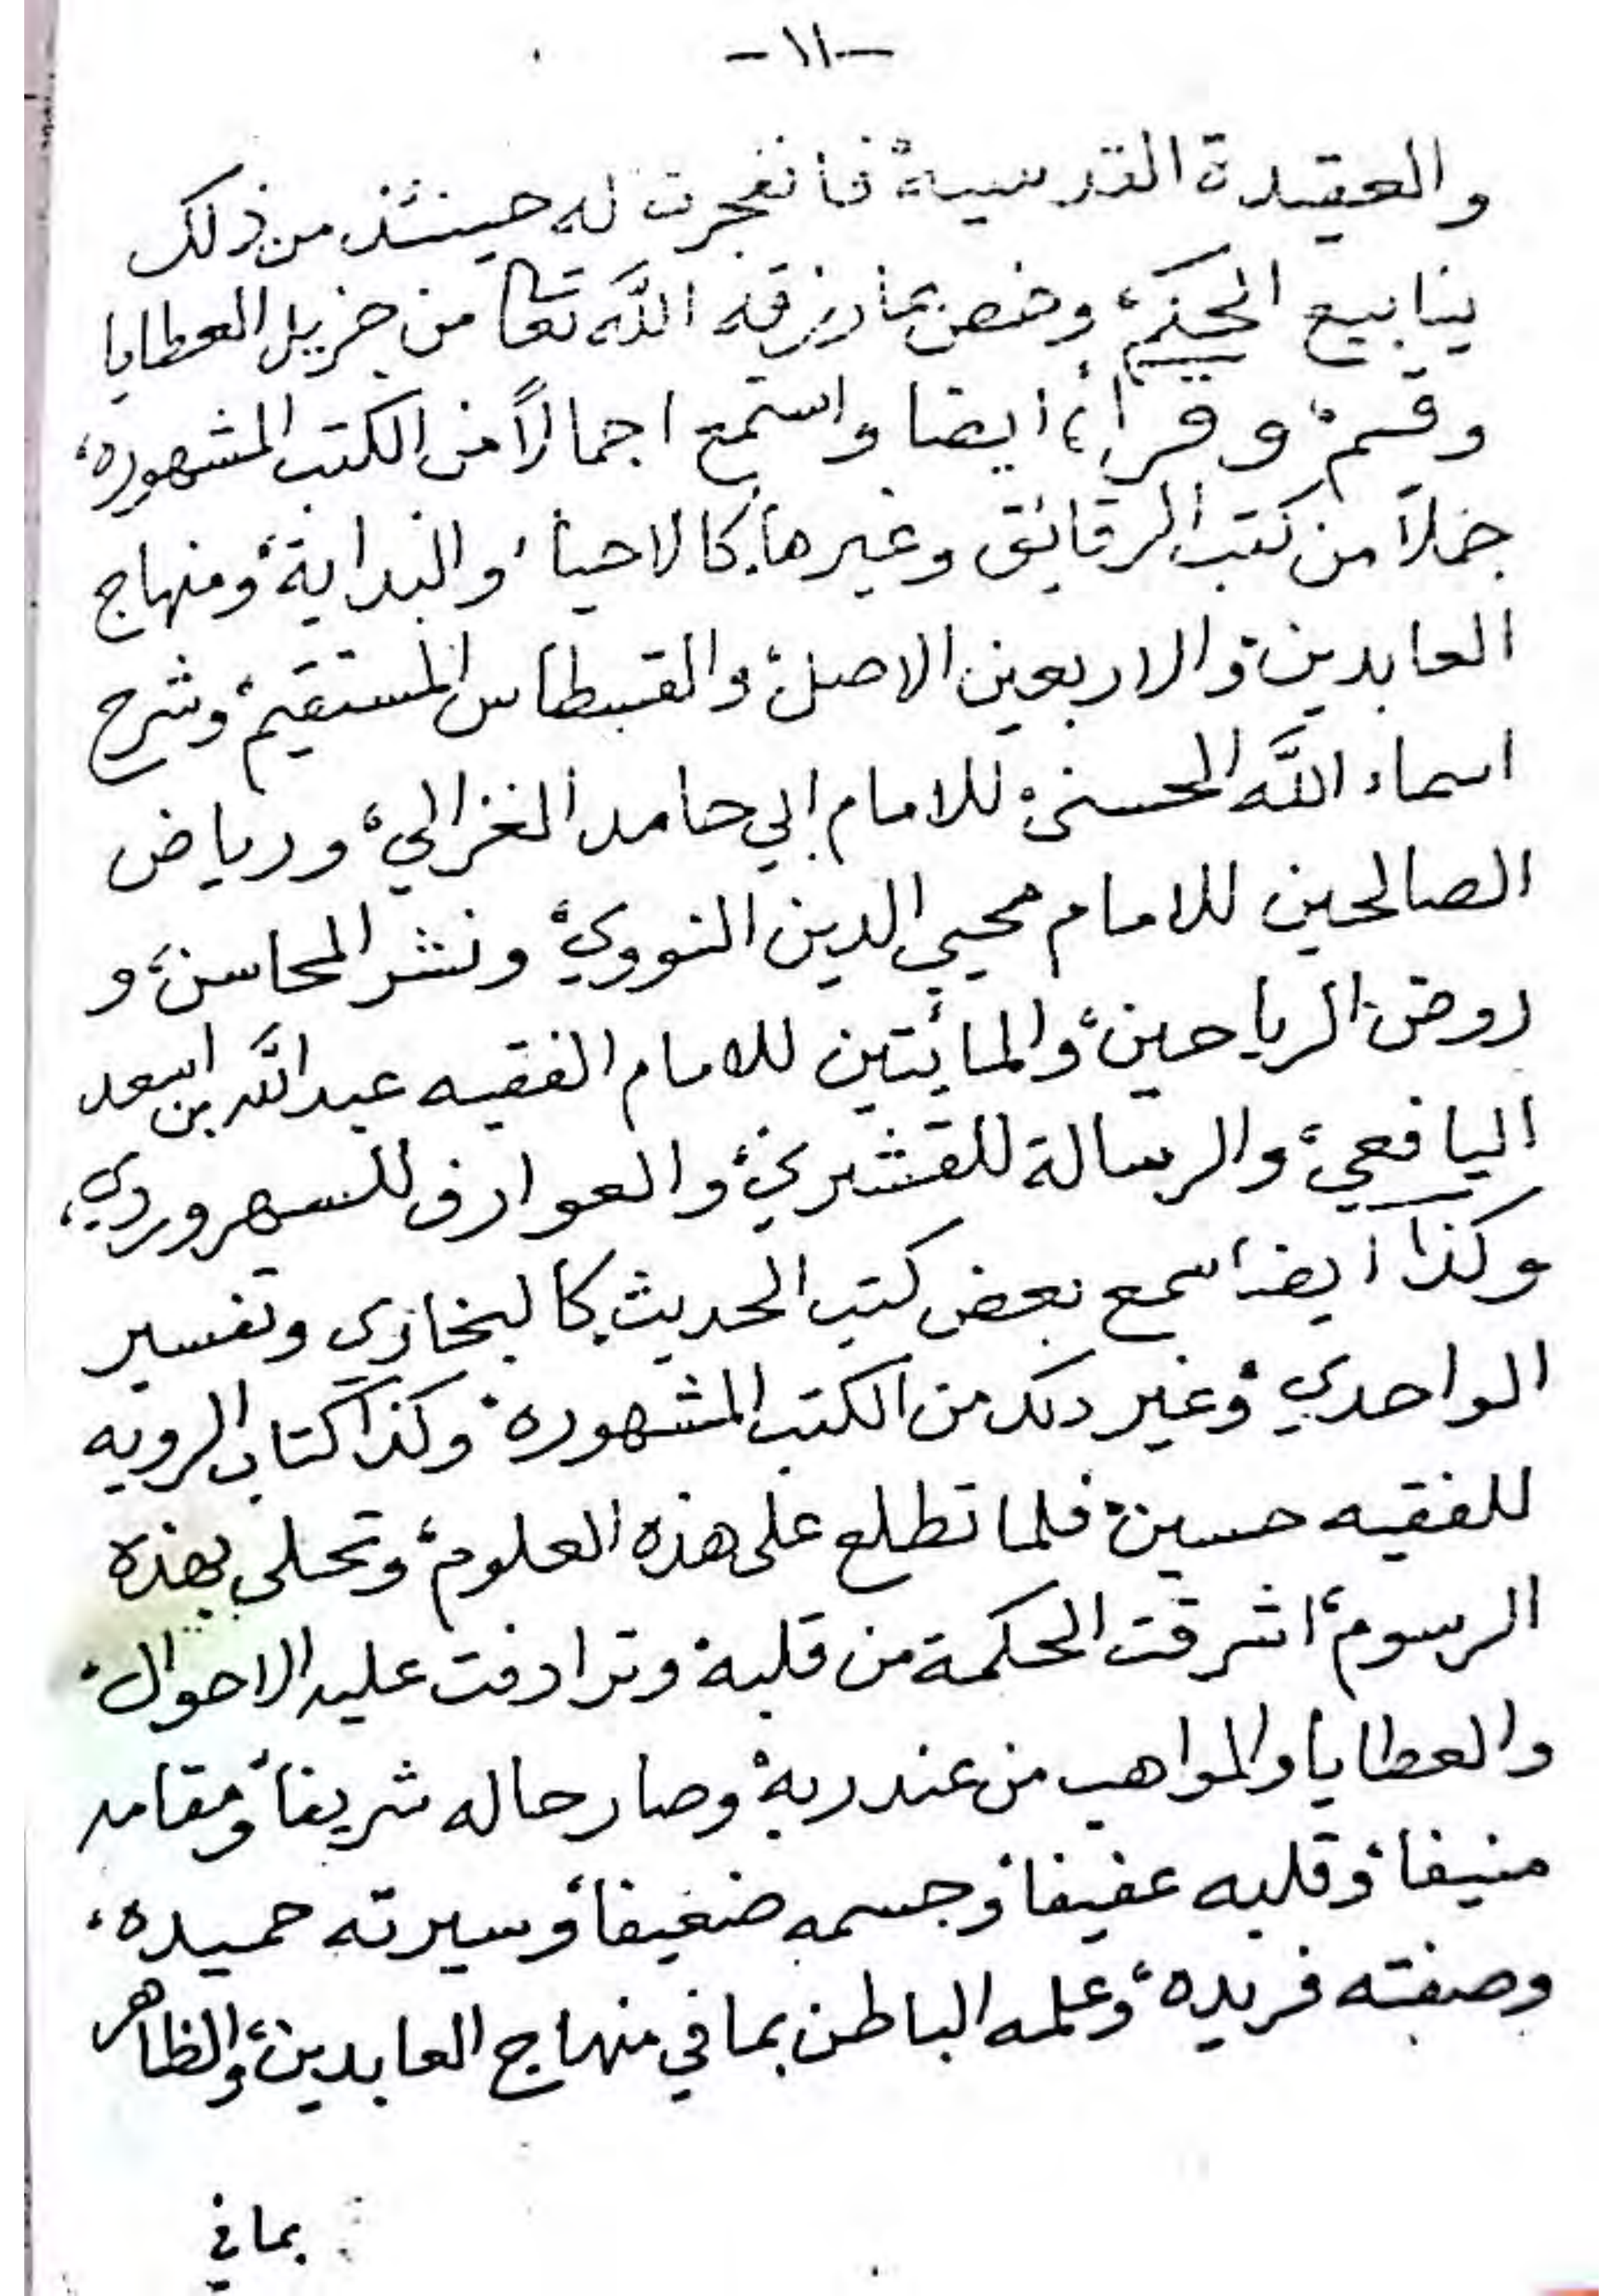 -١١-
والعقيدة القدسية، فانفجرت له حينئذ من ذلك
ينابيع الحكم، وخص بما رزقه الله تعا من جزيل العطايا
وقسم، وقرأ، ايضا واستمع اجمالاً من الكتب المشهوره،
جملاً من كتب الرقائق وغيرها، كالاحياء، والبداية، ومنهاج
العابدين، والاربعين الاصل، والقسطاس المستقيم، وشرح
اسماء الله الحسنى، للامام ابي حامد الغزالي، ورياض
الصالحين للامام محيي الدين النووي، ونشر المحاسن، و
روض الرياحين، والمائتين للامام الفقيه عبدالله بن اسعد
اليافعي، والرسالة للقشيري، والعوارف للسهروردي،
وكذا ايضا سمع بعض كتب الحديث، كالبخاري وتفسير
الواحدي، وغير ذلك من الكتب المشهوره، وكذا كتاب الرويه
للفقيه حسين، فلما تطلع على هذه العلوم، وتحلى بهذه
الرسوم، اشرقت الحكمة من قلبه، وترادفت عليه الاحوال،
والعطايا والمواهب من عند ربه، وصار حاله شريفاً، ومقامه
منيفا، وقلبه عفيفا، وجسمه ضعيفا، وسيرته حميده،
وصفته فريده، وعلمه الباطن بما في منهاج العابدين، والظاهر
بما في